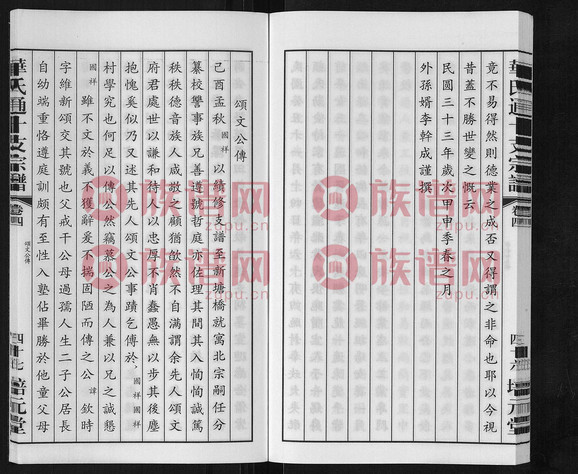 竟不易得然則德業之成否又得謂之非命也耶以今視
昔蓋不勝世變之慨云
民國三十三年歲次甲申季春之月
外孫婿李幹成謹撰
華氏通十支宗譜
卷四
培元堂
頌文公傳
己酉孟秋國祥以續修支譜至新塘橋代就寓北宗嗣任分
纂校讐事族兄善遵號哲庭亦佐理其間其入恂恂誠篤
秩秩德音族人咸敬之顧猶欿然不自滿謂余先人頌文
府君處世以謙和待人以忠厚不肖蠢愚無以步其後塵
抱愧奚似乃又述其先人頌文公事蹟乞傳於國祥國祥
村學究也何足以傳公然竊慕公之為人兼以兄之誠懇
國祥雖不文於義不獲辭爰不揣固陋而傳之公諱欽時
字維新頌文其號也父戒干公母過孺人生二子公居長
自幼端重恪遵庭訓頗有至性入塾佔畢勝於他童父母
華氏通十支宗譜
卷四
頌文公傳
四十七
培元堂
族谱网
zupu.cn
族谱网
zupu.cn
族谱网
zupu.cn
族谱网
zupu.cn